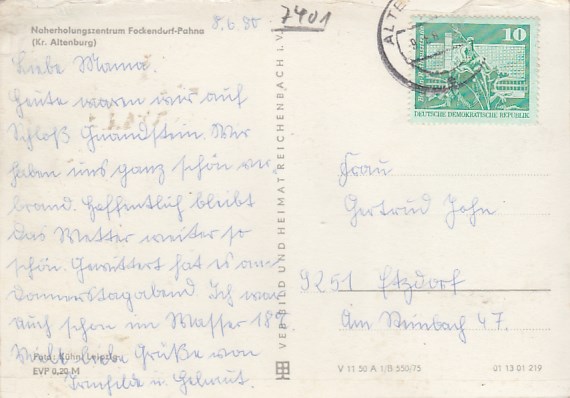 8.6.80
7401
Naherholungszentrum Fockendorf-Pahna
(Kr. Altenburg)
Liebe Mama.
Heute waren wir auf
Schloß Gnandstein. Wir
haben uns ganz schön ver
brand. Hoffentlich bleibt
das Wetter weiter so
schön. Gewittert hat es am
Donnerstagabend. Ich war
auch schon im Wasser 18°
Viele liebe Grüße von
Irmhilde u. Helmut.
Foto: Kühn, Leipzig
EVP 0,20 M
VEB BILD UND HEIMAT REICHENBACH I. V.
ALTE
10
DEUTSCHE DEMOKRATISCHE REPUBLIK
Frau
Gertrud John
9251 Etzdorf
Am Steinbach 47.
V 11 50 A 1/B 550/75
01 13 01 219